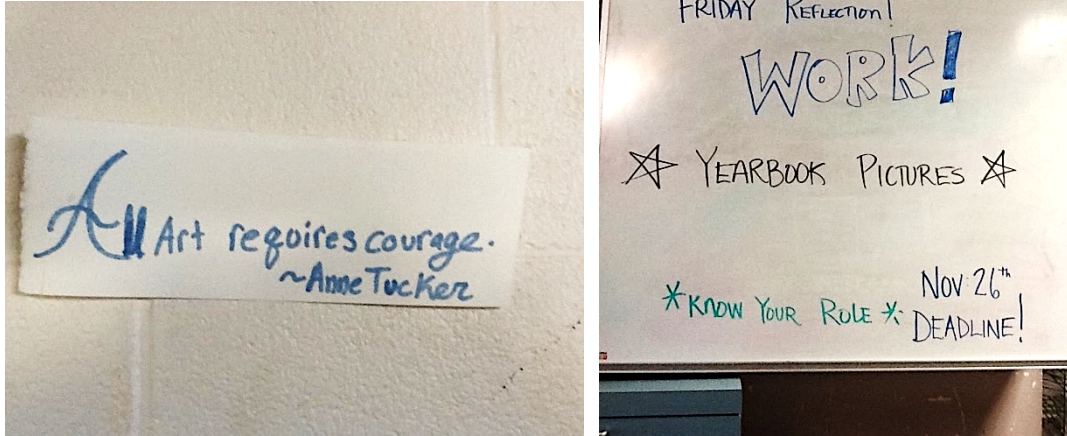 All Art requires courage.
~Anne Tucker
FRIDAY REFLECTION!
WORK!
YEARBOOK PICTURES
*KNOW YOUR ROLE *
NOV 26th
DEADLINE!